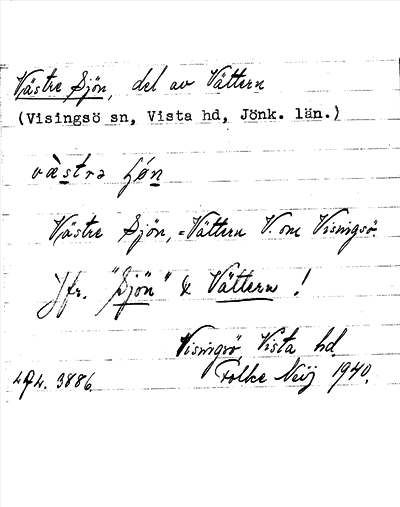 Västre Sjön, del av Vättern
(Visingsö sn, Vista hd, Jönk. län.)
Västre Sjön, = Vättern V. om Visingsö.
Jfr. "Sjön" & Vättern !
Visingsö, Vista hd
Folke Neij 1940.
3886.